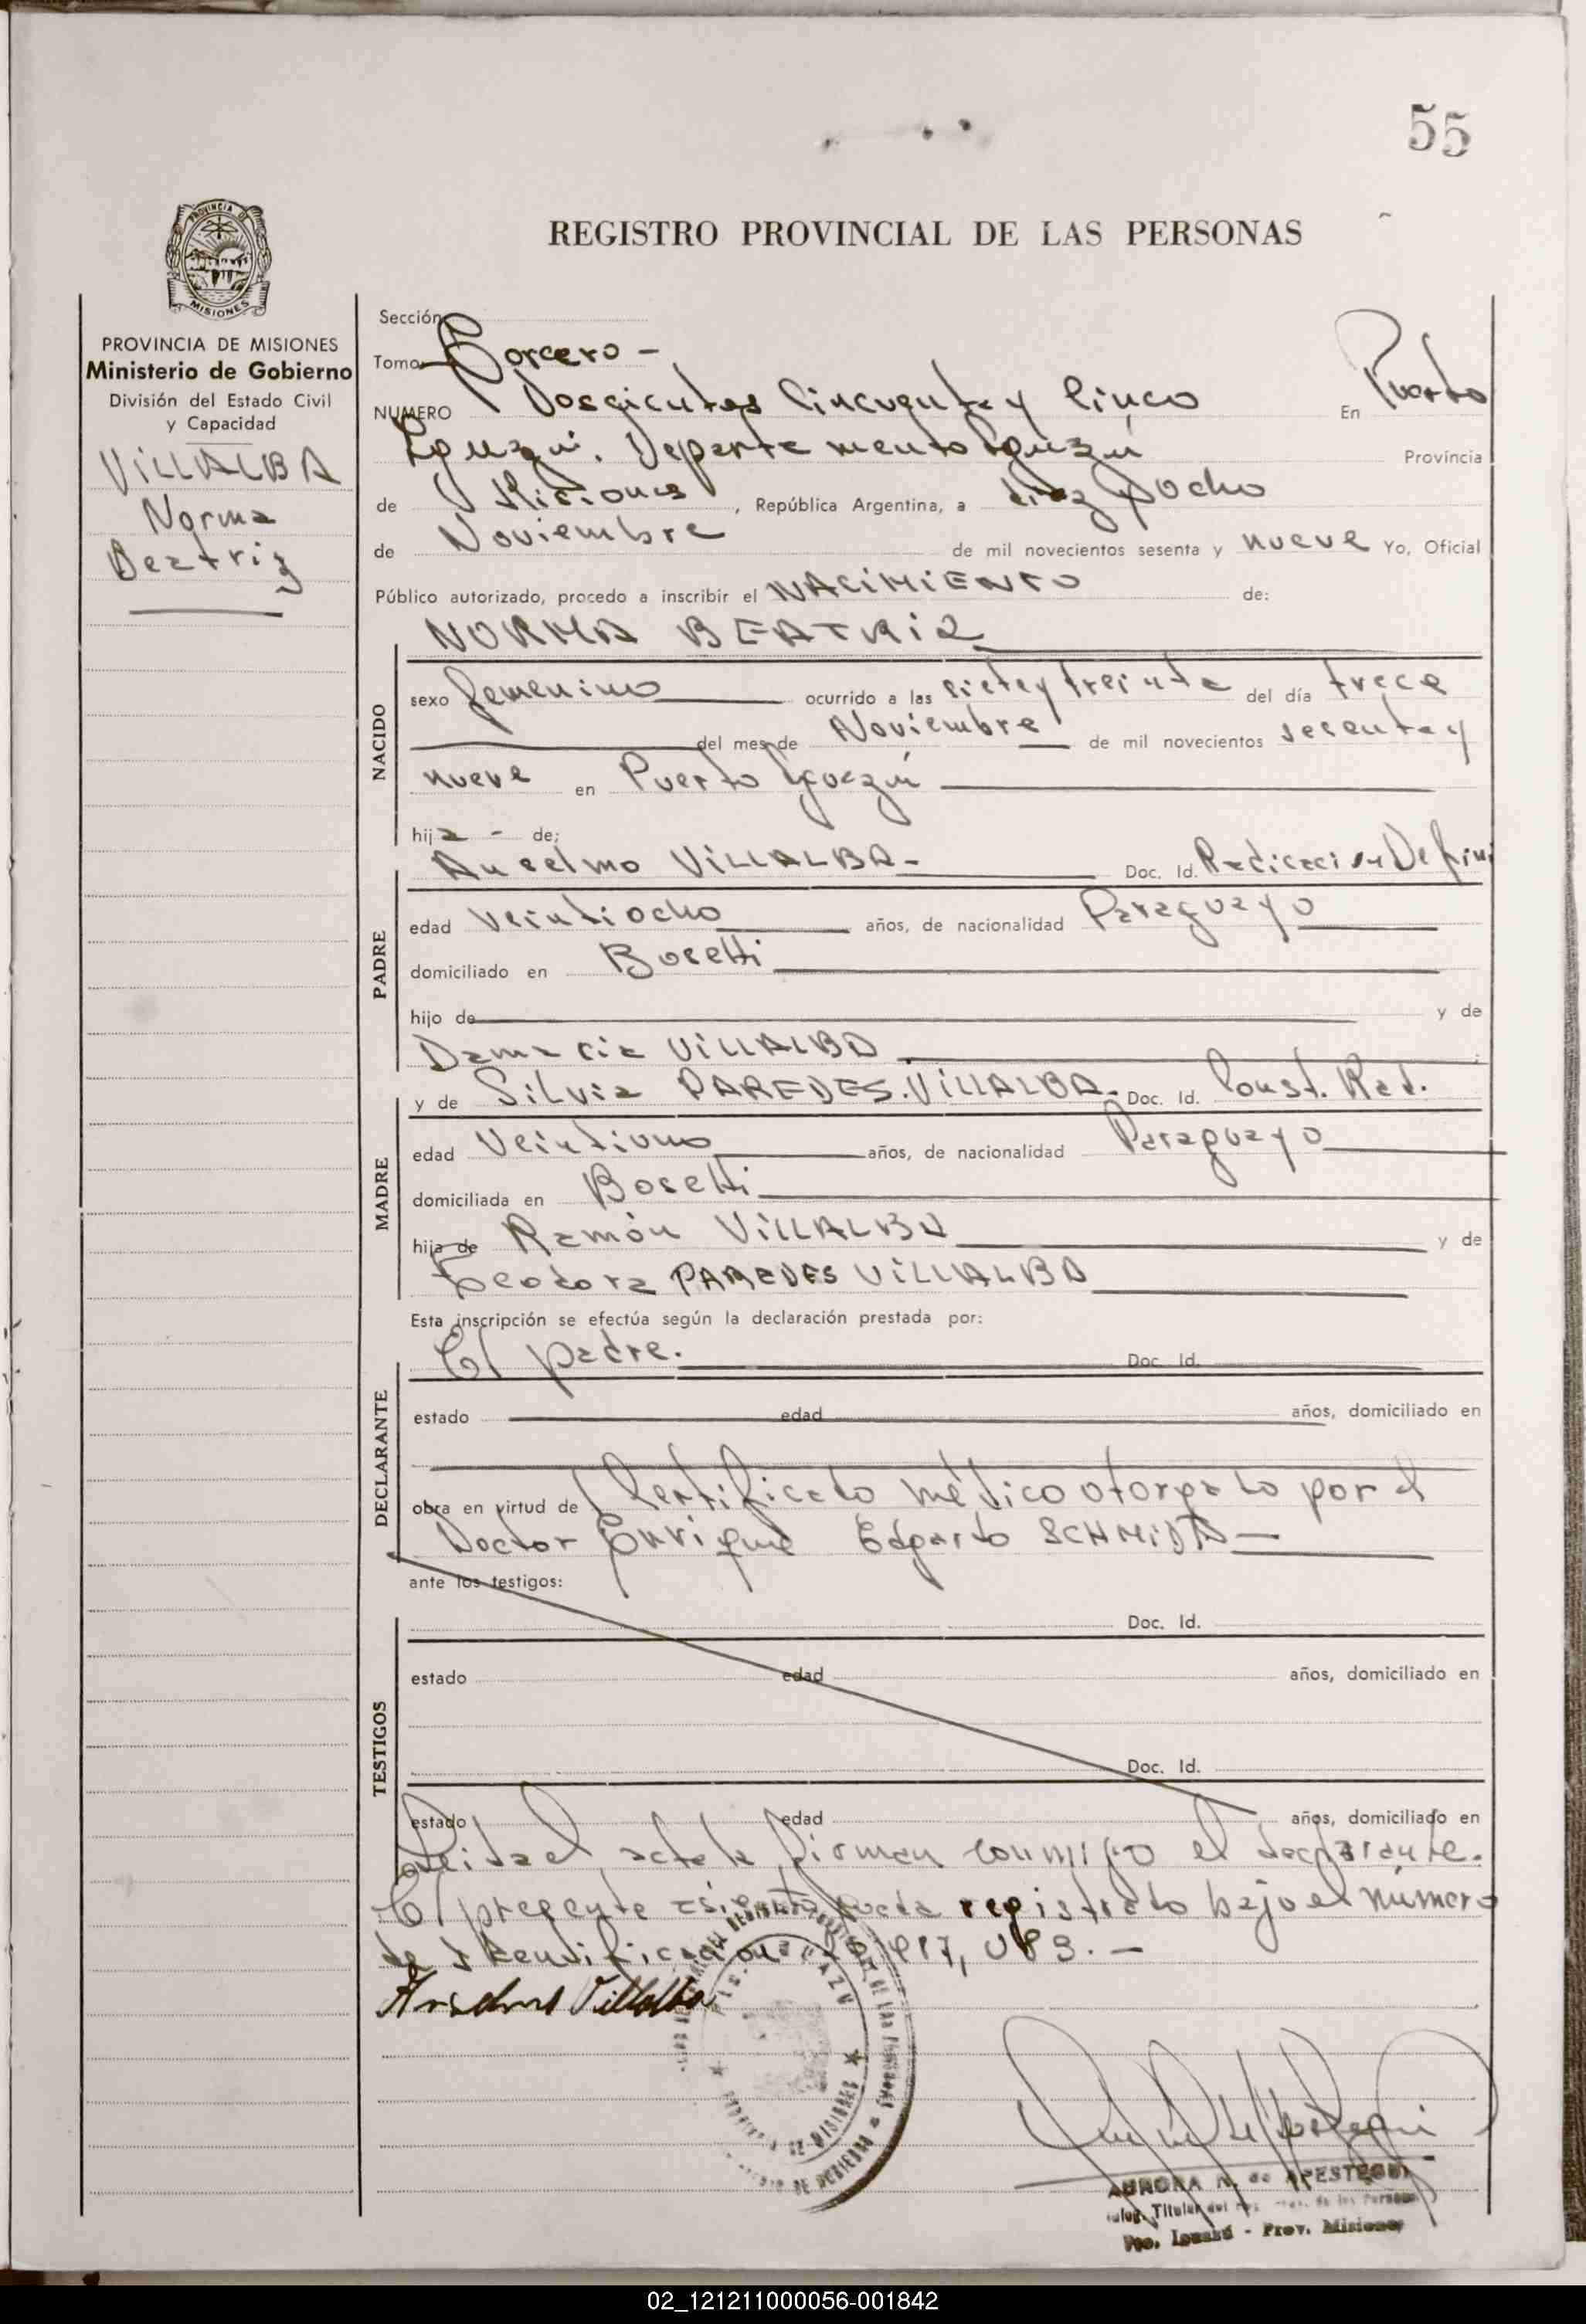 55
PROVINCIA DE
MISIONES
REGISTRO PROVINCIAL DE LAS PERSONAS
PROVINCIA DE MISIONES
Ministerio de Gobierno
División del Estado Civil
y Capacidad
VILLALBA
Norma
Beatriz
Sección
Tomo Tercero -
NUMERO Doscientos Cincuenta y Cinco En Puerto
Iguazú, Departamento Iguazú Provincia
de Misiones, República Argentina, a diez y ocho
de Noviembre de mil novecientos sesenta y nueve Yo, Oficial
Público autorizado, procedo a inscribir el NACIMIENTO de:
NORMA BEATRIZ
NACIDO
sexo femenino ocurrido a las siete y treinta del día trece
del mes de Noviembre de mil novecientos sesenta y
nueve en Puerto Iguazú
hija - de;
Anselmo VILLALBA- Doc. Id. Radicación Defini
PADRE
edad veintiocho años, de nacionalidad Paraguayo
domiciliado en Bosetti
hijo de y de
Damacia VILLALBA ;
y de Silvia PAREDES. VILLALBA- Doc. Id. Const. Rad.
MADRE
edad Veintiuno años, de nacionalidad Paraguayo
domiciliada en Bosetti
hija de Ramón VILLALBA y de
Teodora PAREDES VILLALBA
Esta inscripción se efectúa según la declaración prestada por:
El padre. Doc. Id.
DECLARANTE
estado edad años, domiciliado en
obra en virtud de Certificado médico otorgado por el
Doctor Enrique Edgardo SCHMIDT
ante los testigos:
Doc. Id.
TESTIGOS
estado edad años, domiciliado en
Doc. Id.
estado edad años, domiciliado en
Leida el acta la firman conmigo el declarante.
El presente asiento queda registrado bajo el número
de Identificación
Anselmo Villalba
AURORA N. de APESTEGUI
Titular del
Pto. Iguazú - Prov. Misiones
02_121211000056-001842